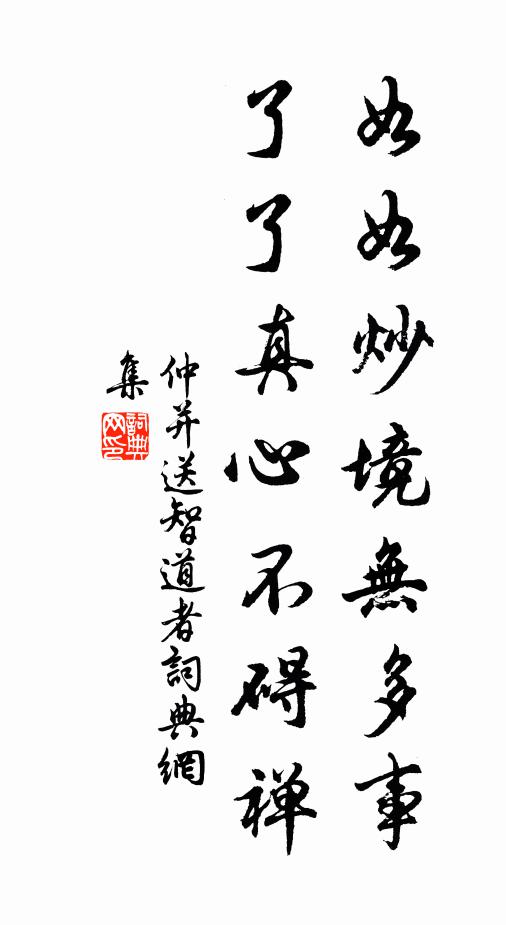 如如炒境無多事
了了真心不碍禅
仲并送智道者詞典網
集
詞典
网印